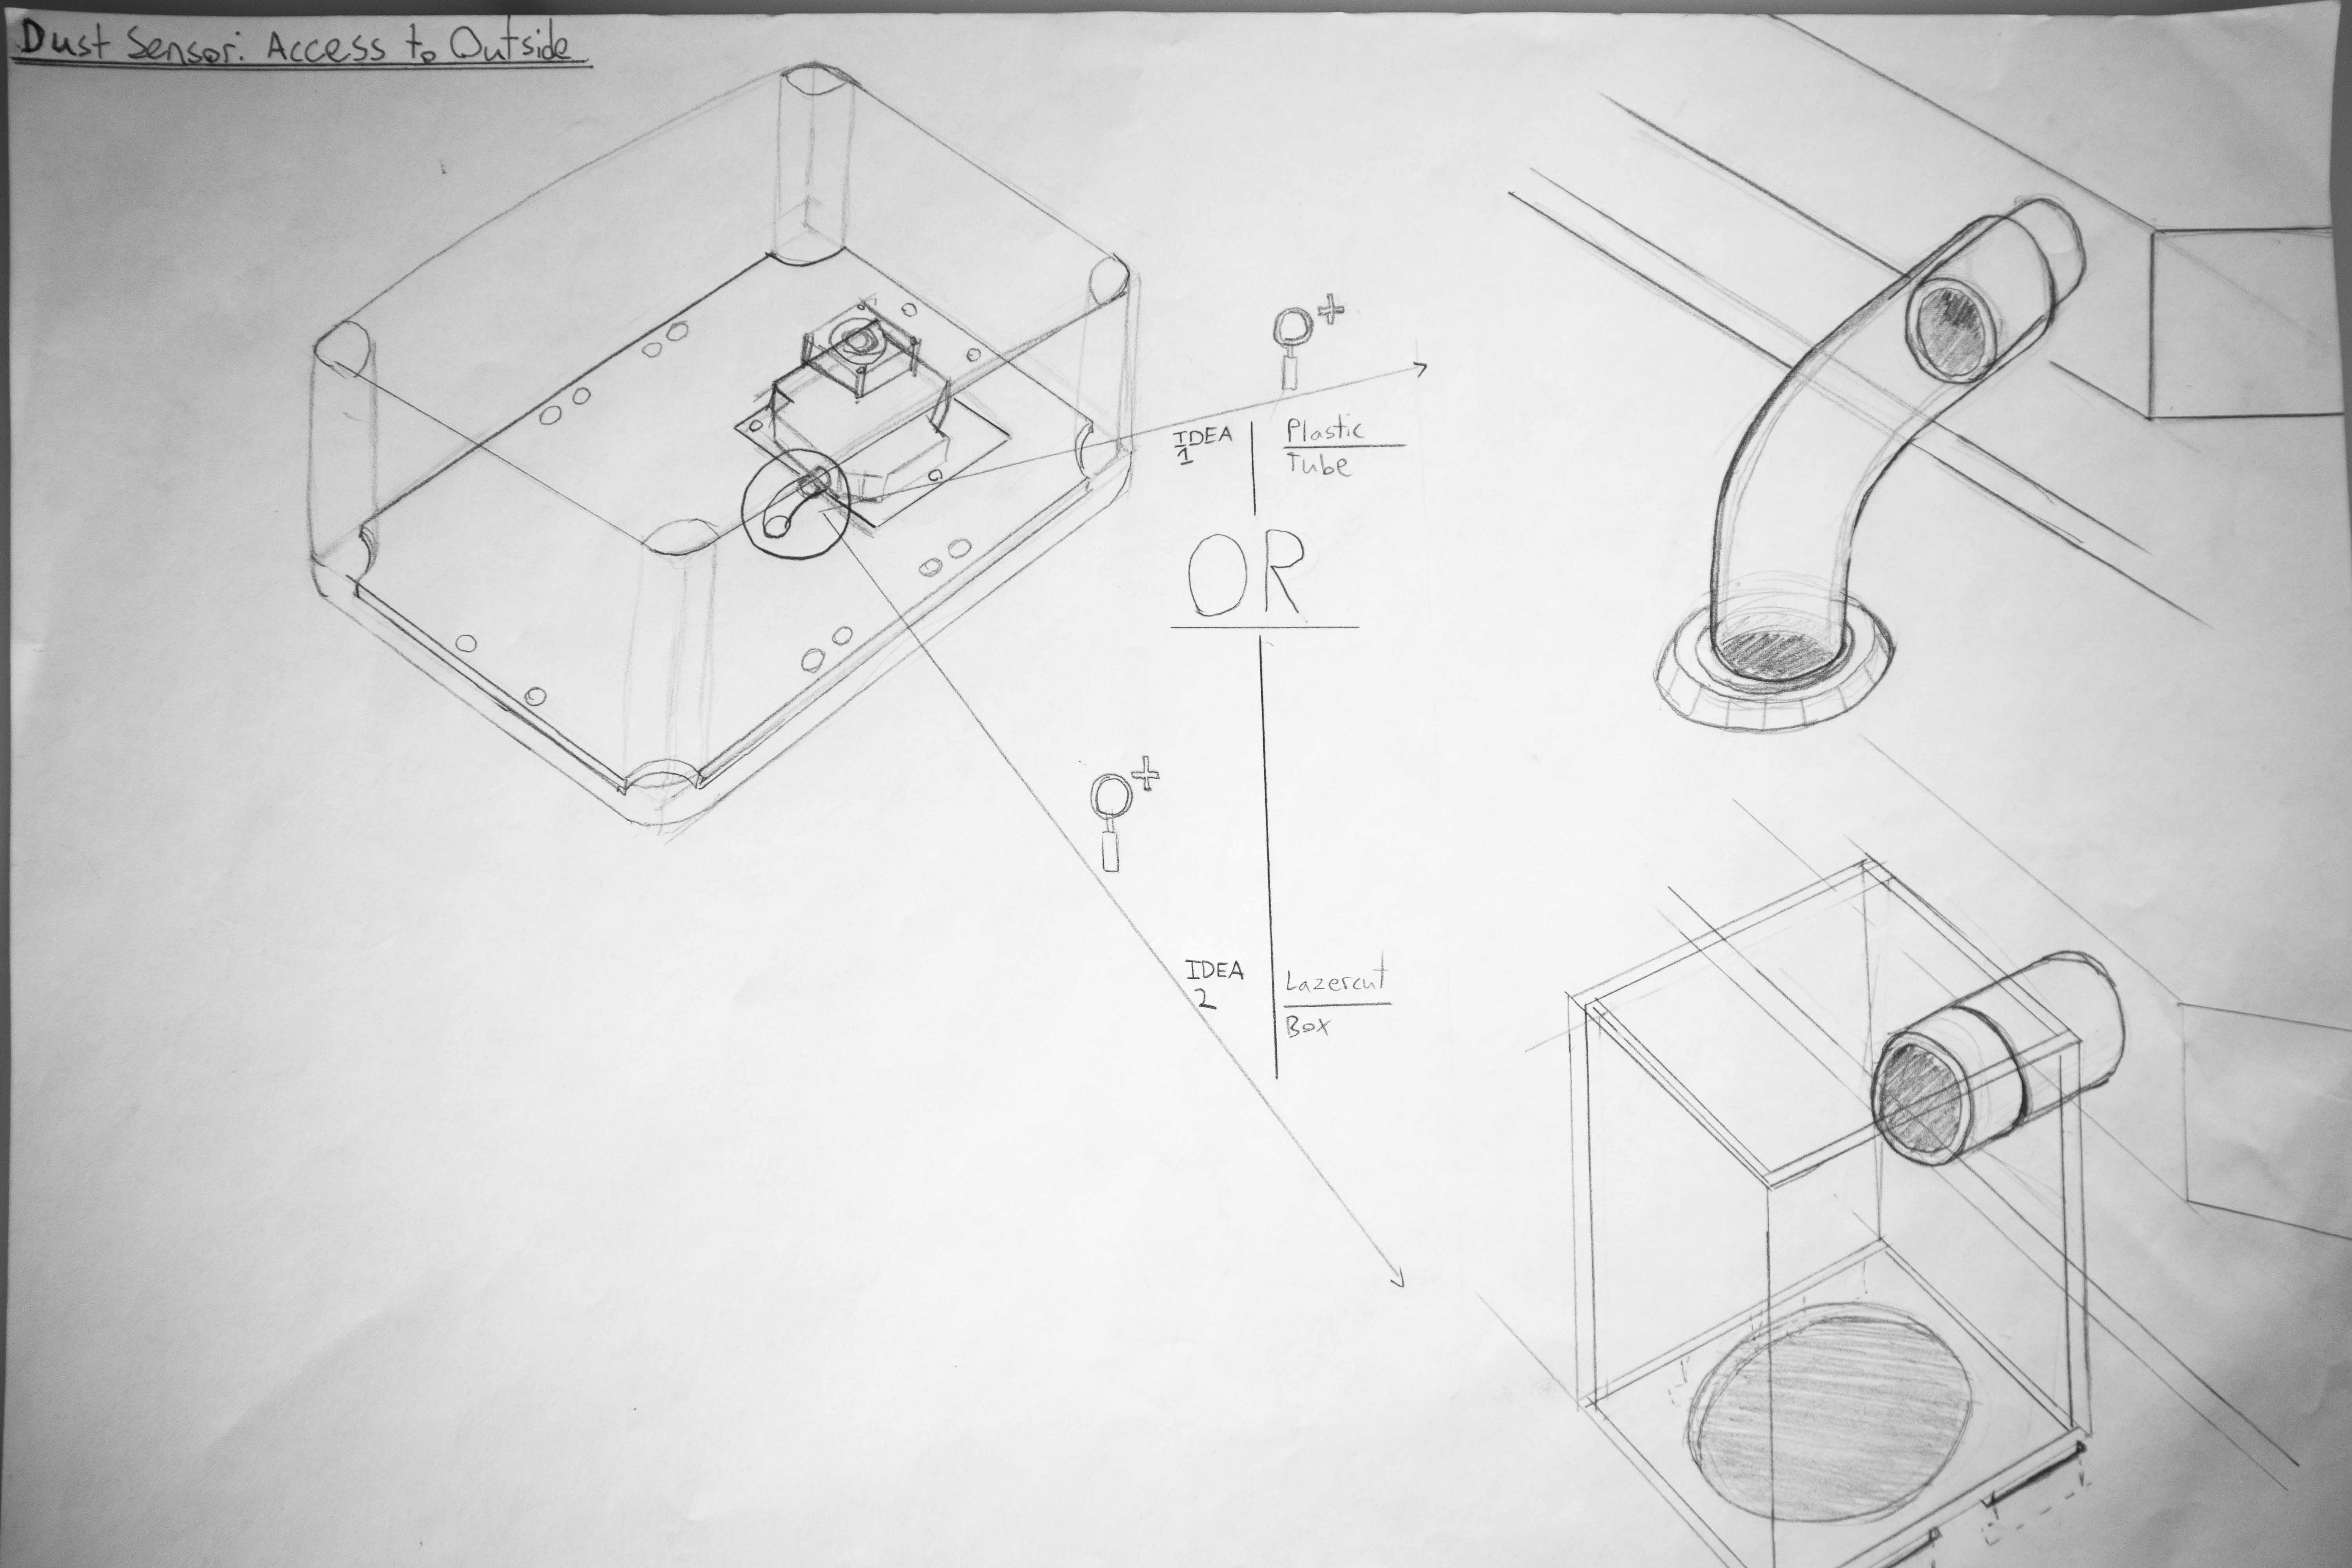 Dust Sensor: Access to Outside
IDEA
1
Plastic
Tube
OR
IDEA
2
Lazercut
Box